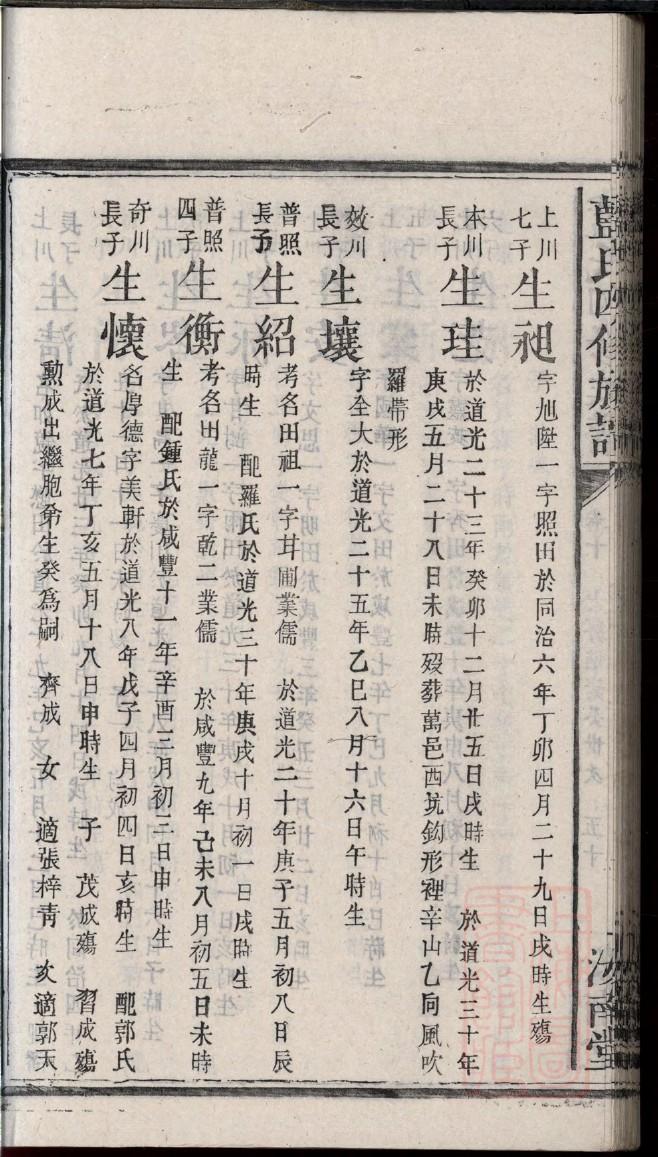 藍氏四修族譜
汝南堂
上川七子生昶字旭陞一字照田於同治六年丁卯四月二十九日戌時生殤
本川長子生珪於道光二十三年癸卯十二月廿五日戌時生 於道光三十年
庚戌五月二十八日未時歿葬萬邑西坑鈎形裡辛山乙向風吹
羅帶形
效川長子生壤字全大於道光二十五年乙巳八月十六日午時生
普照長子生紹考名田祖一字芸圃業儒 於道光二十年庚子五月初八日辰
時生 配羅氏於道光三十年庚戌十月初一日戌時生
普照四子生衡考名田龍一字乾二業儒 於咸豐九年己未八月初五日未時
生 配鍾氏於咸豐十一年辛酉三月初三日申時生
奇川長子生懷名厚德字美軒於道光八年戊子四月初四日亥時生 配郭氏
於道光七年丁亥五月十八日申時生 子 茂成殤 習成殤
勲成出繼胞弟生癸為嗣 齊成 女 適張梓青 次適郭天